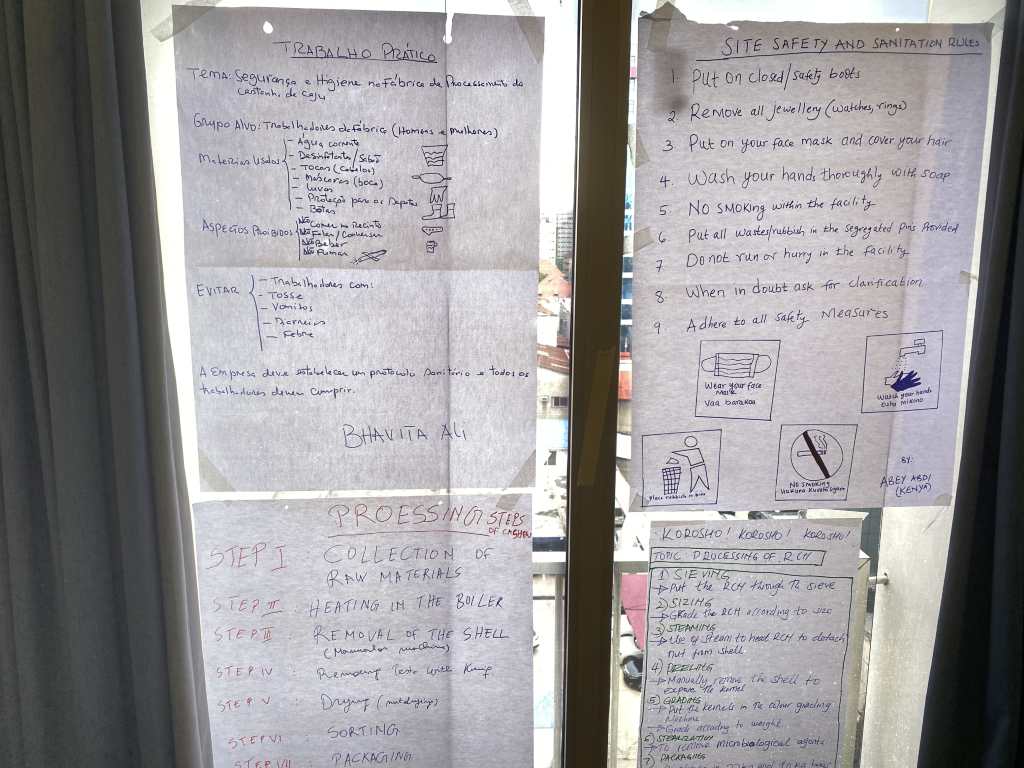 TRABALHO PRÁTICO
TEMA: Segurança e Higiene na Fábrica de Processamento da
Castanha de Caju
GRUPO ALVO: Trabalhadores da Fábrica (Homens e Mulheres)
Materiais Usados
- Água corrente
- Desinfetante/Sabão
- Tocas (Cabelos)
- Máscaras (boca)
- Luvas
- Proteção para os
- Botas
ASPECTOS PROIBIDOS
Não Comer no Recinto
Não Falar/Conversar
Não Beber
Não Fumar
EVITAR
- Trabalhadores com:
- Tosse
- Vomitos
- Diarreias
- Febre
A Empresa deve estabelecer um protocolo Sanitário e todos os
trabalhadores devem cumprir.
BHAVITA ALI
PROESSING STEPS
OF CASHEW
STEP I : COLLECTION OF
RAW MATERIALS
STEP II : HEATING IN THE BOILER
STEP III : REMOVAL OF THE SHELL
STEP IV : Removing Testa with Knife
STEP V : Drying
STEP VI : SORTING
STEP VII PACKAGING
SITE SAFETY AND SANITATION RULES
1. Put on closed/safety boots
2. Remove all jewellery (watches, rings)
3. Put on your face mask and cover your hair
4. Wash your hands thoroughly with soap
5. NO SMOKING within the facility
6. Put all wastes/rubbish in the segregated bins Provided
7. Do not run or hurry in the facility
8. When in doubt ask for clarification
9. Adhere to all safety Measures
Wear your face
Mask
Vaa barakoa
Wash your hands
Osha mikono
Place rubbish in bins
NO SMOKING
BY:
ABEY ABDI
(KENYA)
KOROSHO! KOROSHO! KOROSHO!
TOPIC: PROCESSING OF RCN
1) SIEVING
→ Put the RCN through the sieve
2) SIZING
→ Grade the RCN according to size
3) STEAMING
→ Use of steam to heat RCN to detach
nut from shell
4) PEELING
→ Manually remove the shell to
expose the kernel
5) GRADING
→ Put the kernels in the colour grading
Machine
- Grade according to weight
6) STERILIZATION
→ To remove microbiological agents
7) PACKAGING